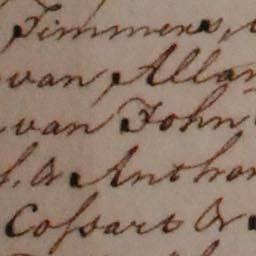 Timmers,
van Allar
van John
h. & Anthon
Cofsart &